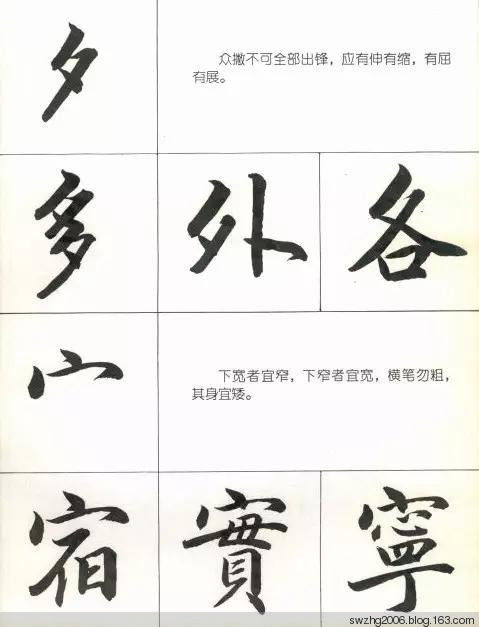 夕
众撇不可全部出锋，应有伸有缩，有屈
有展。
多 外 各
宀
下宽者宜窄，下窄者宜宽，横笔勿粗，
其身宜矮。
宿 實 寧
swzhg2006.blog.163.com